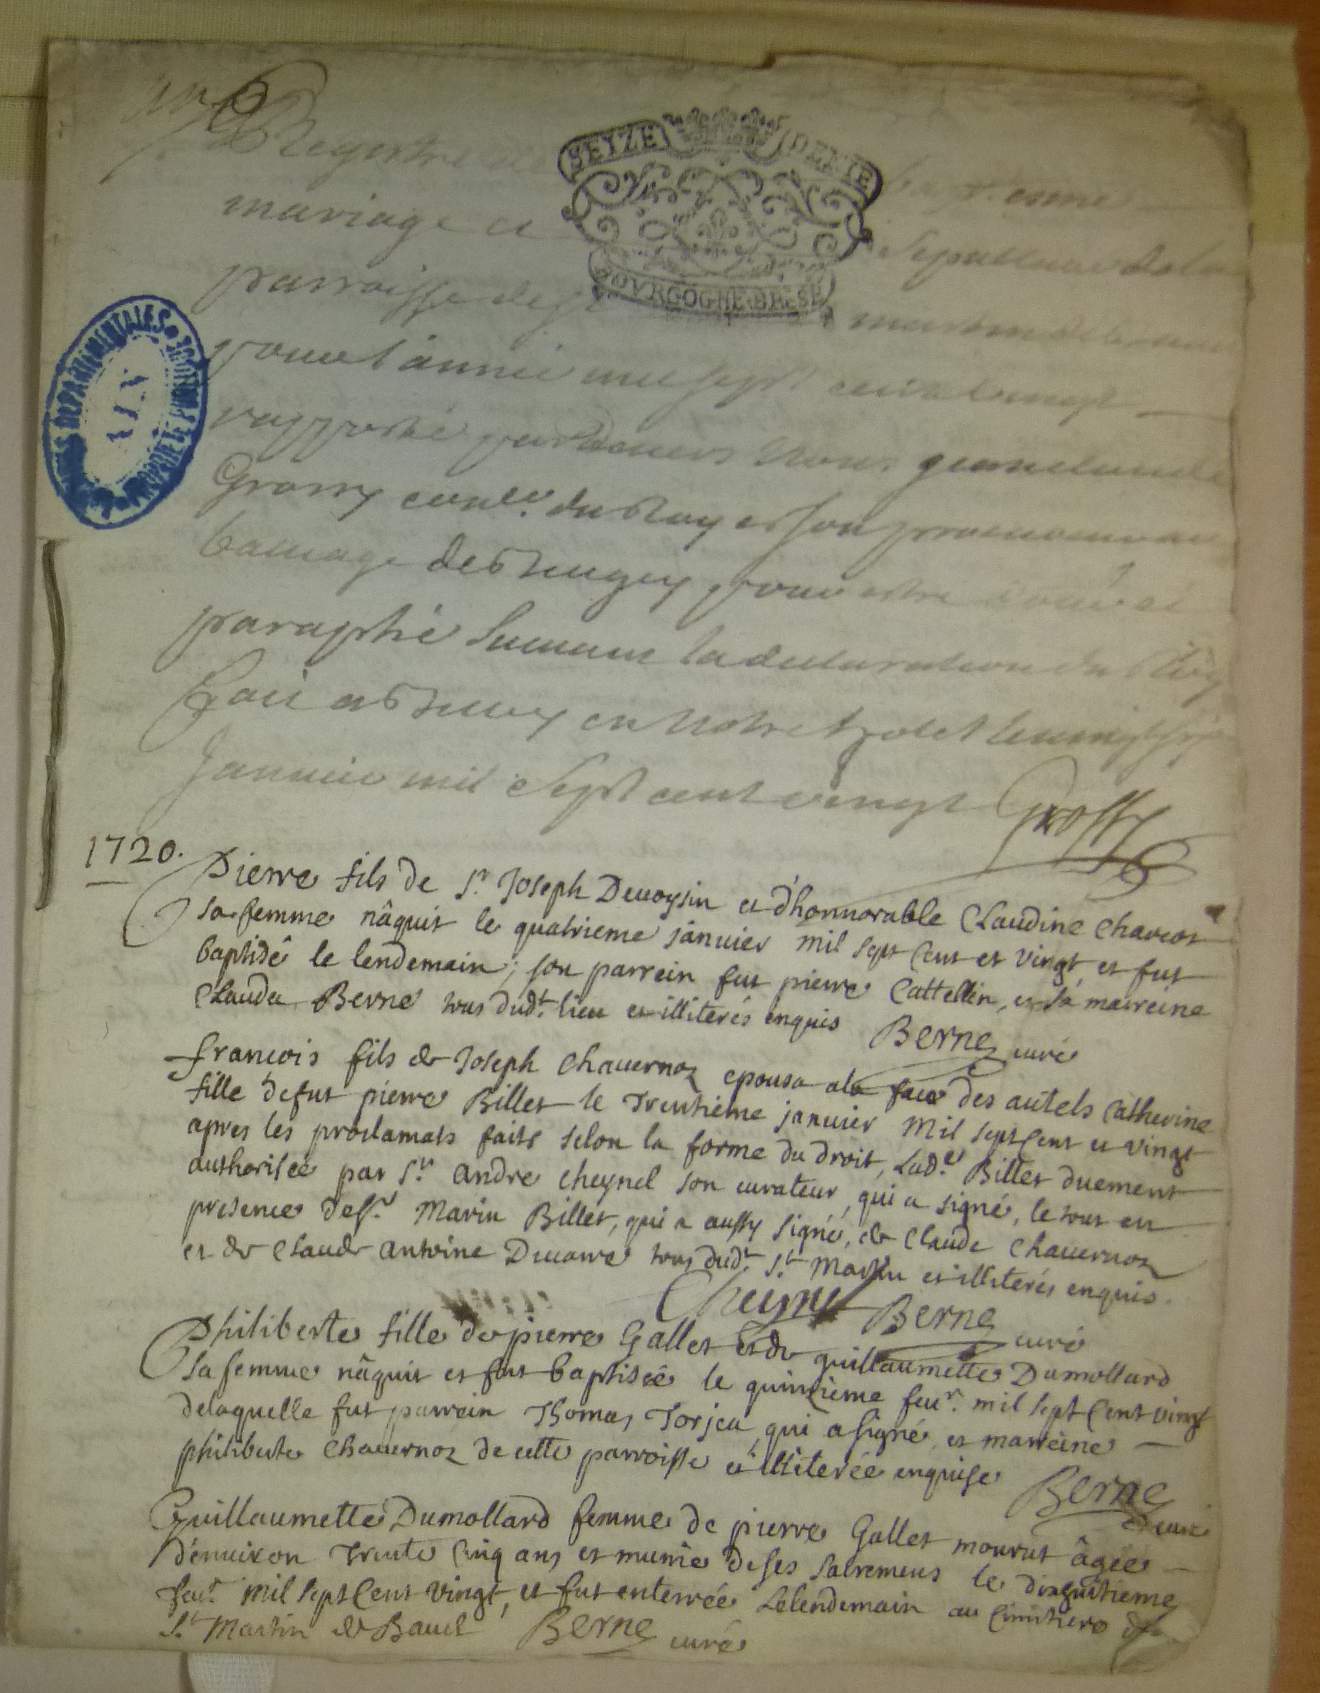 Registre baptesme
SEIZE DEN IE
mariage et sepulture de la
BOVRGOGNE BRESSE
parroisse de st martin
ARCHIVES DEPARTEMENTALES PROPRIETE PUBLIQUE
AIN
pour l'année mil sept cent vingt
rapporté pardevers Nous
Grossy conler. du Roy et son procureur au
bailliage de Beugey pour estre cotté et
paraphé suivant la declaration du Roy
fait a Belley en notre hotel le
Janvier mil sept cent vingt Grossy
1720.
Pierre fils de Sr. Joseph Devoysin et d'honnorable Claudine Charcot
sa femme nâquit le quatrieme janvier mil sept Cent et vingt et fut
baptisé le lendemain; son parrein fut pierre Cattellin, et sa marreine
Claudu Berne tous dudt. lieu et illiterés enquis Berne curé
françois fils de Joseph Chavernoz epousa ala face des autels Catherine
fille defut pierre Billet le Trentième janvier mil sept Cent et vingt
apres les proclamats faits selon la forme du droit, Lade. Billet duement
authorisée par Sr. andre cheynel son curateur, qui a signé, le tout en
presence de Sr. Marin Billet, qui a aussy signé, de Claude Chavernoz
et de Claude antoine Ducarre tous dudt. St. Martin et illiterés enquis.
Cheynel Berne curé
Philiberte fille de pierre Gallet et de guillaumette Dumollard
sa femme nâquit et fut baptisée le quinzieme fevr. mil sept Cent vingt
delaquelle fut parrain Thomas Torjeu, qui a signé, et marreine
philiberte Chavernoz de cette parroisse et illiterée enquise Berne
curé
Guillaumette Dumollard femme de pierre Gallet mourut âgée
d'environ trente Cinq ans et munie deses sacremens le dixhuitieme
fevr. mil sept Cent vingt, et fut enterrée Lelendemain au Cimitiere de
St. Martin de Bavel Berne curé